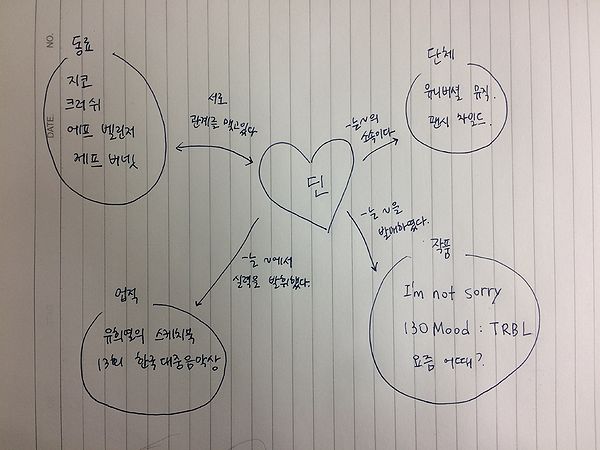 NO.
DATE
동료
지코
크러쉬
에프 벨린저
제프 버넷
서로
관계를 맺고있다
단체
유니버셜 뮤직.
팬시 차일드.
-는 ~의
소속이다.
딘
-는 ~을
발매하였다.
작품
I'm not sorry
130 Mood : TRBL
요즘 어때?
-는 ~에서
실력을 발휘했다.
업적
유희열의 스케치북
13회 한국대중음악상